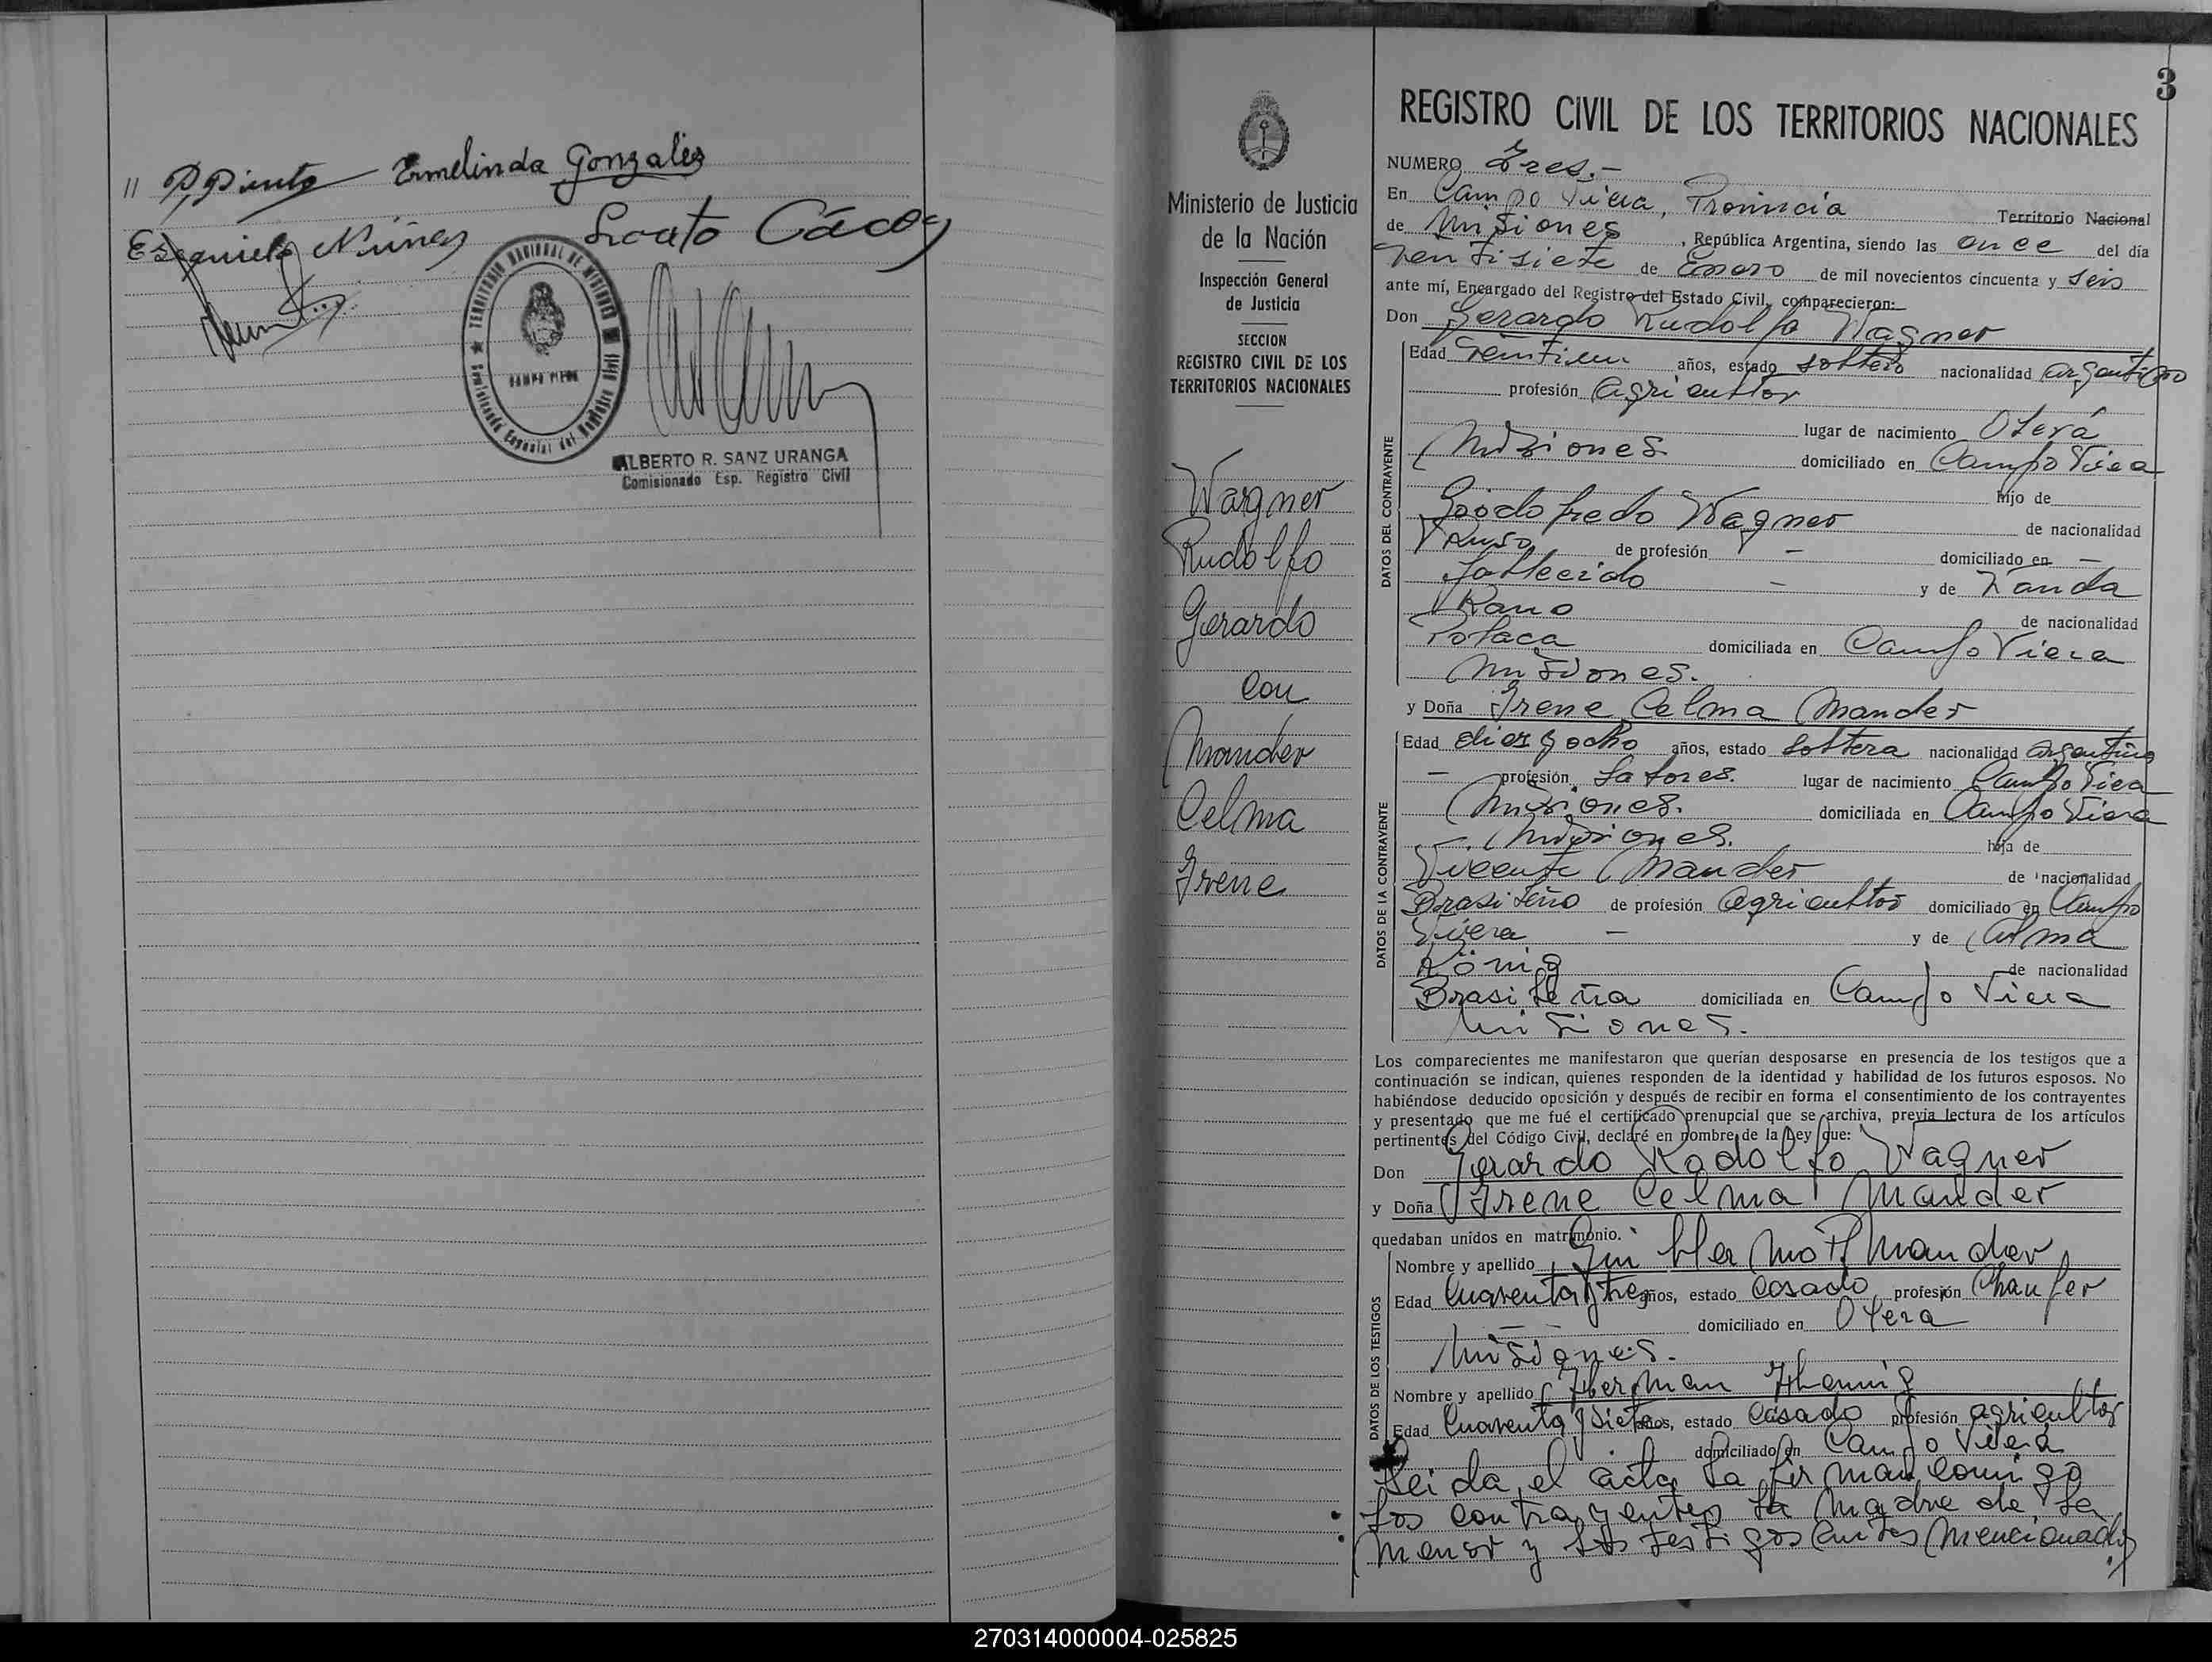 " P. Pinto Ermelinda Gonzalez
Núñez
TERRITORIO NACIONAL DE MISIONES
CAMPO VIERA
ALBERTO R. SANZ URANGA
Comisionado Esp. Registro Civil
3
Ministerio de Justicia
de la Nación
Inspección General
de Justicia
SECCION
REGISTRO CIVIL DE LOS
TERRITORIOS NACIONALES
Wagner
Rudolfo
Gerardo
con
Mander
Celma
Irene
REGISTRO CIVIL DE LOS TERRITORIOS NACIONALES
NUMERO Tres.-
En Campo Viera, Provincia Territorio Nacional
de Misiones, República Argentina, siendo las once del día
ventisiete de Enero de mil novecientos cincuenta y seis
ante mí, Encargado del Registro del Estado Civil, comparecieron:
Don Gerardo Rudolfo Wagner
DATOS DEL CONTRAYENTE
Edad años, estado soltero nacionalidad argentino
profesión agricultor
lugar de nacimiento Oberá
Misiones domiciliado en Campo Viera
hijo de
Godofredo Wagner de nacionalidad
Ruso de profesión - domiciliado en -
fallecido - y de Wanda
de nacionalidad
Polaca domiciliada en Campo Viera
Misiones.
y Doña Irene Celma Mander
DATOS DE LA CONTRAYENTE
Edad diez y ocho años, estado soltera nacionalidad argentina
- profesión labores. lugar de nacimiento Campo Viera
Misiones. domiciliada en Campo Viera
-. Misiones. hija de
Vicente Mander de nacionalidad
Brasileño de profesión agricultor domiciliado en Campo
Viera - y de Alma
König de nacionalidad
Brasileña domiciliada en Campo Viera
Misiones.
Los comparecientes me manifestaron que querían desposarse en presencia de los testigos que a
continuación se indican, quienes responden de la identidad y habilidad de los futuros esposos. No
habiéndose deducido oposición y después de recibir en forma el consentimiento de los contrayentes
y presentado que me fué el certificado prenupcial que se archiva, previa lectura de los artículos
pertinentes del Código Civil, declaré en nombre de la Ley que:
Don Gerardo Rodolfo Wagner
y Doña Irene Celma Mander
quedaban unidos en matrimonio.
DATOS DE LOS TESTIGOS
Nombre y apellido Guillermo Mander
Edad Cuarenta y tres años, estado Casado profesión Chaufer
domiciliado en Obera
Misiones.
Nombre y apellido Herman
Edad Cuarenta y siete años, estado Casado profesión agricultor
domiciliado en Campo Viera
Leida el acta la firman comigo
los contrayentes la madre de la
menor y los testigos antes mencionados
270314000004-025825